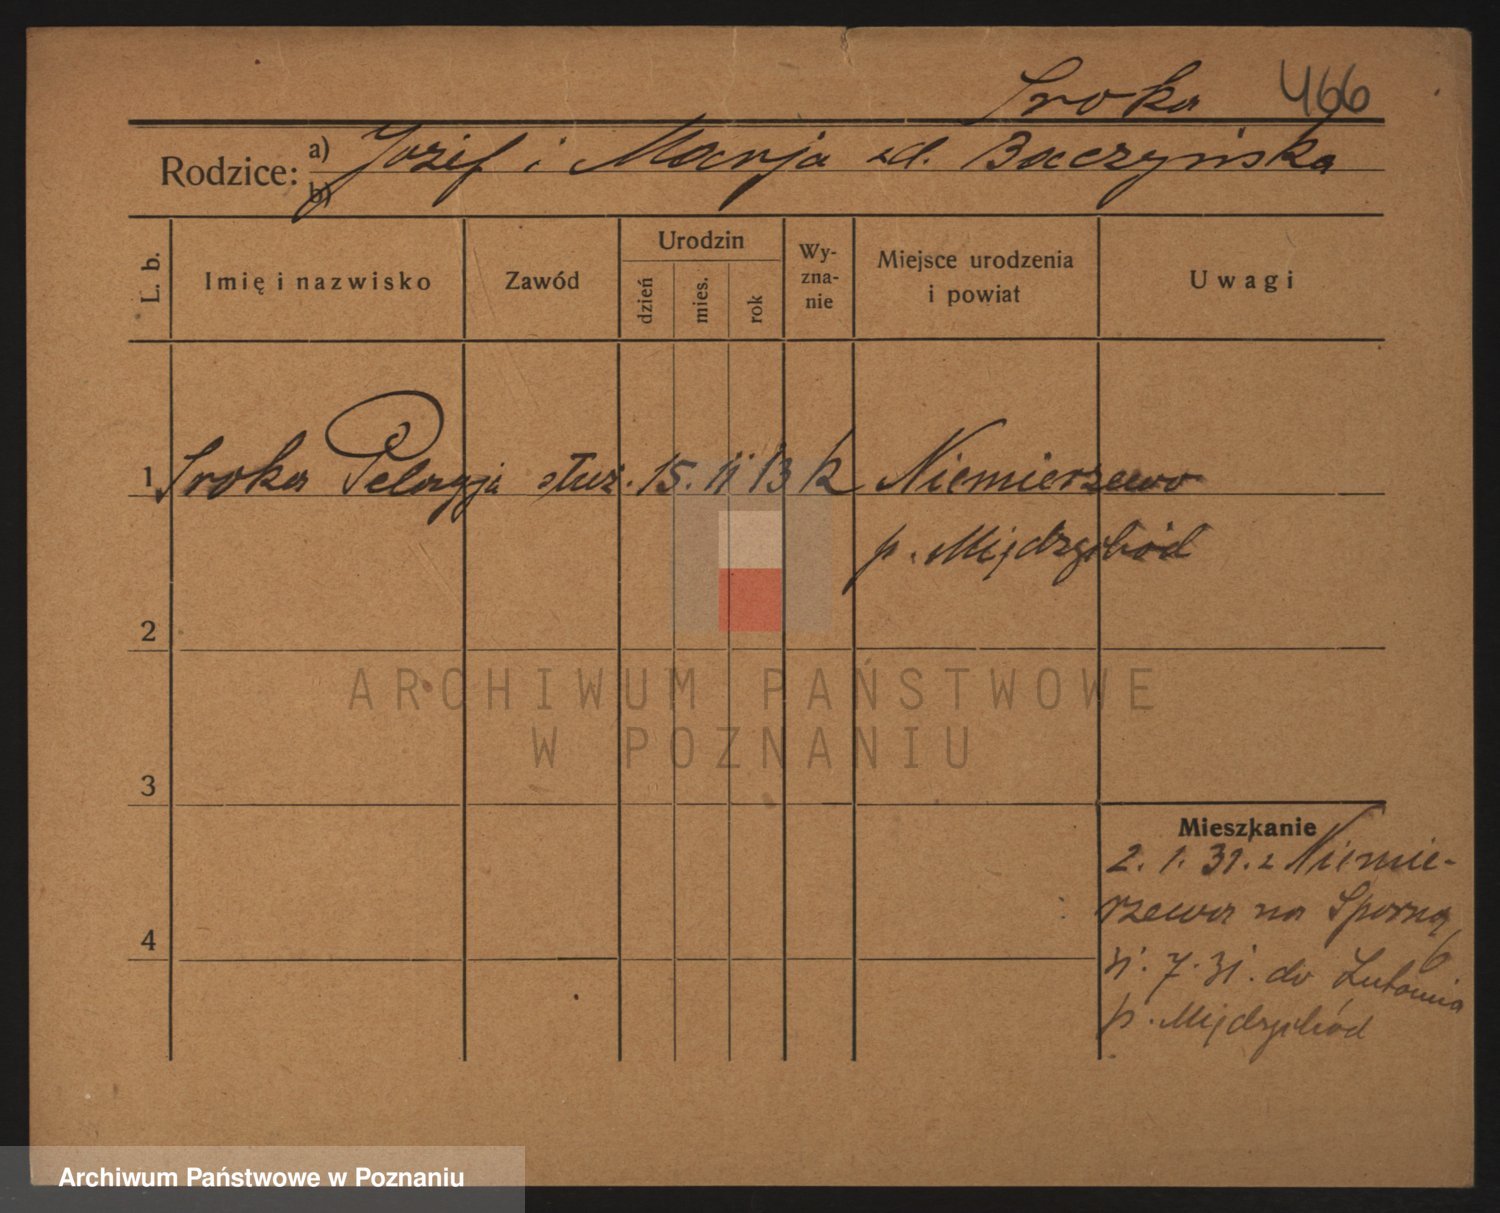 Sroka 466
Rodzice: a) Józef i Marja zd. Baczyńska
b)
L. b. Imię i nazwisko Zawód Urodzin dzień mies. rok Wy-zna-nie Miejsce urodzenia i powiat Uwagi
1 Sroka Pelagja służ. 15. 11 13 k Niemierzewo
p. Międzychód
2
ARCHIWUM PAŃSTWOWE
W POZNANIU
3
Mieszkanie
2. 1. 31. z Niemie-
rzewa na Sporną
6
31. 7. 31. do Lutomia
p. Międzychód
4
Archiwum Państwowe w Poznaniu